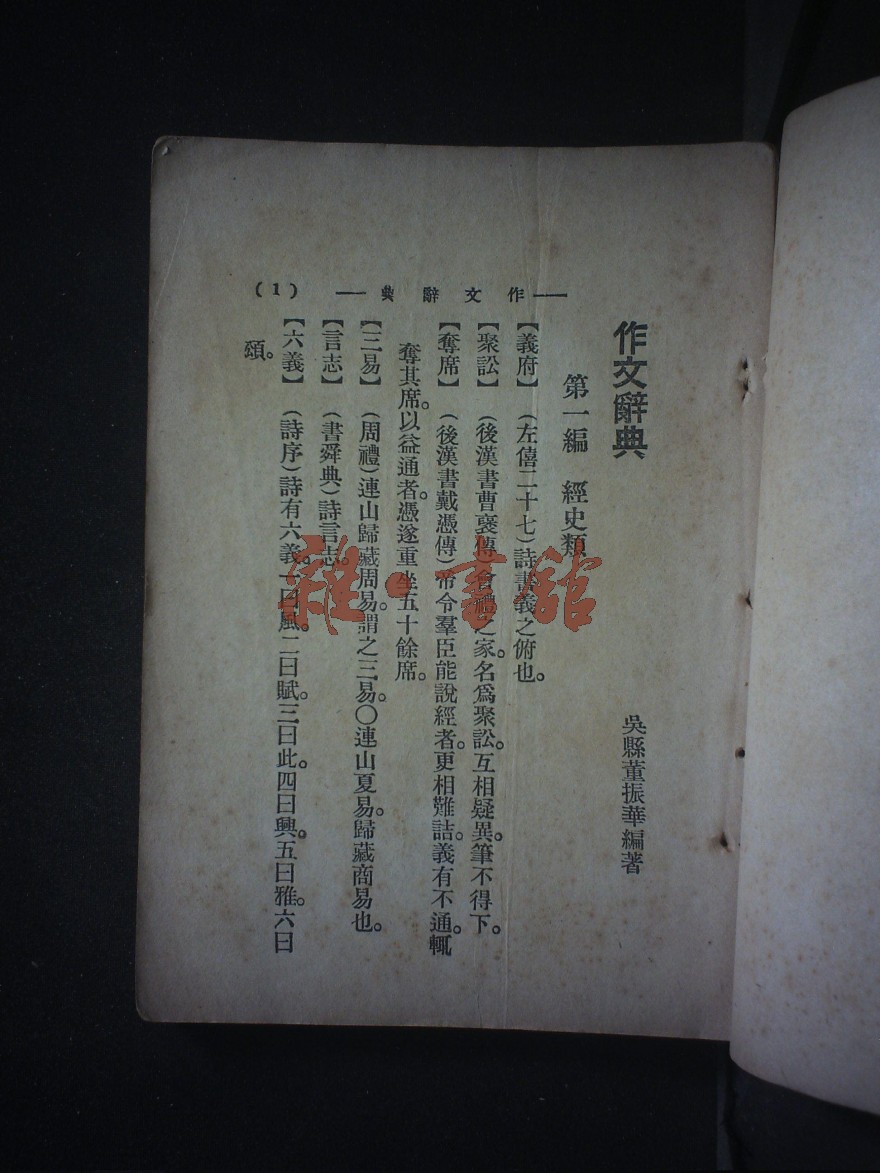 作文辭典
吳縣董振華編著
第一編　經史類
【義府】　(左僖二十七)詩書義之府也。
【聚訟】　(後漢書曹襃傳)會禮之家。名爲聚訟。互相疑異。筆不得下。
【奪席】　(後漢書戴憑傳)帝令羣臣能說經者。更相難詰。義有不通。輒
奪其席。以益通者。憑遂重坐五十餘席。
【三易】　(周禮)連山歸藏周易。謂之三易。〇連山夏易。歸藏商易也。
【言志】　(書舜典)詩言志。
【六義】　(詩序)詩有六義。一曰風。二曰賦。三曰此。四曰興。五曰雅。六曰
頌。
—作文辭典—
(1)
雜·書館